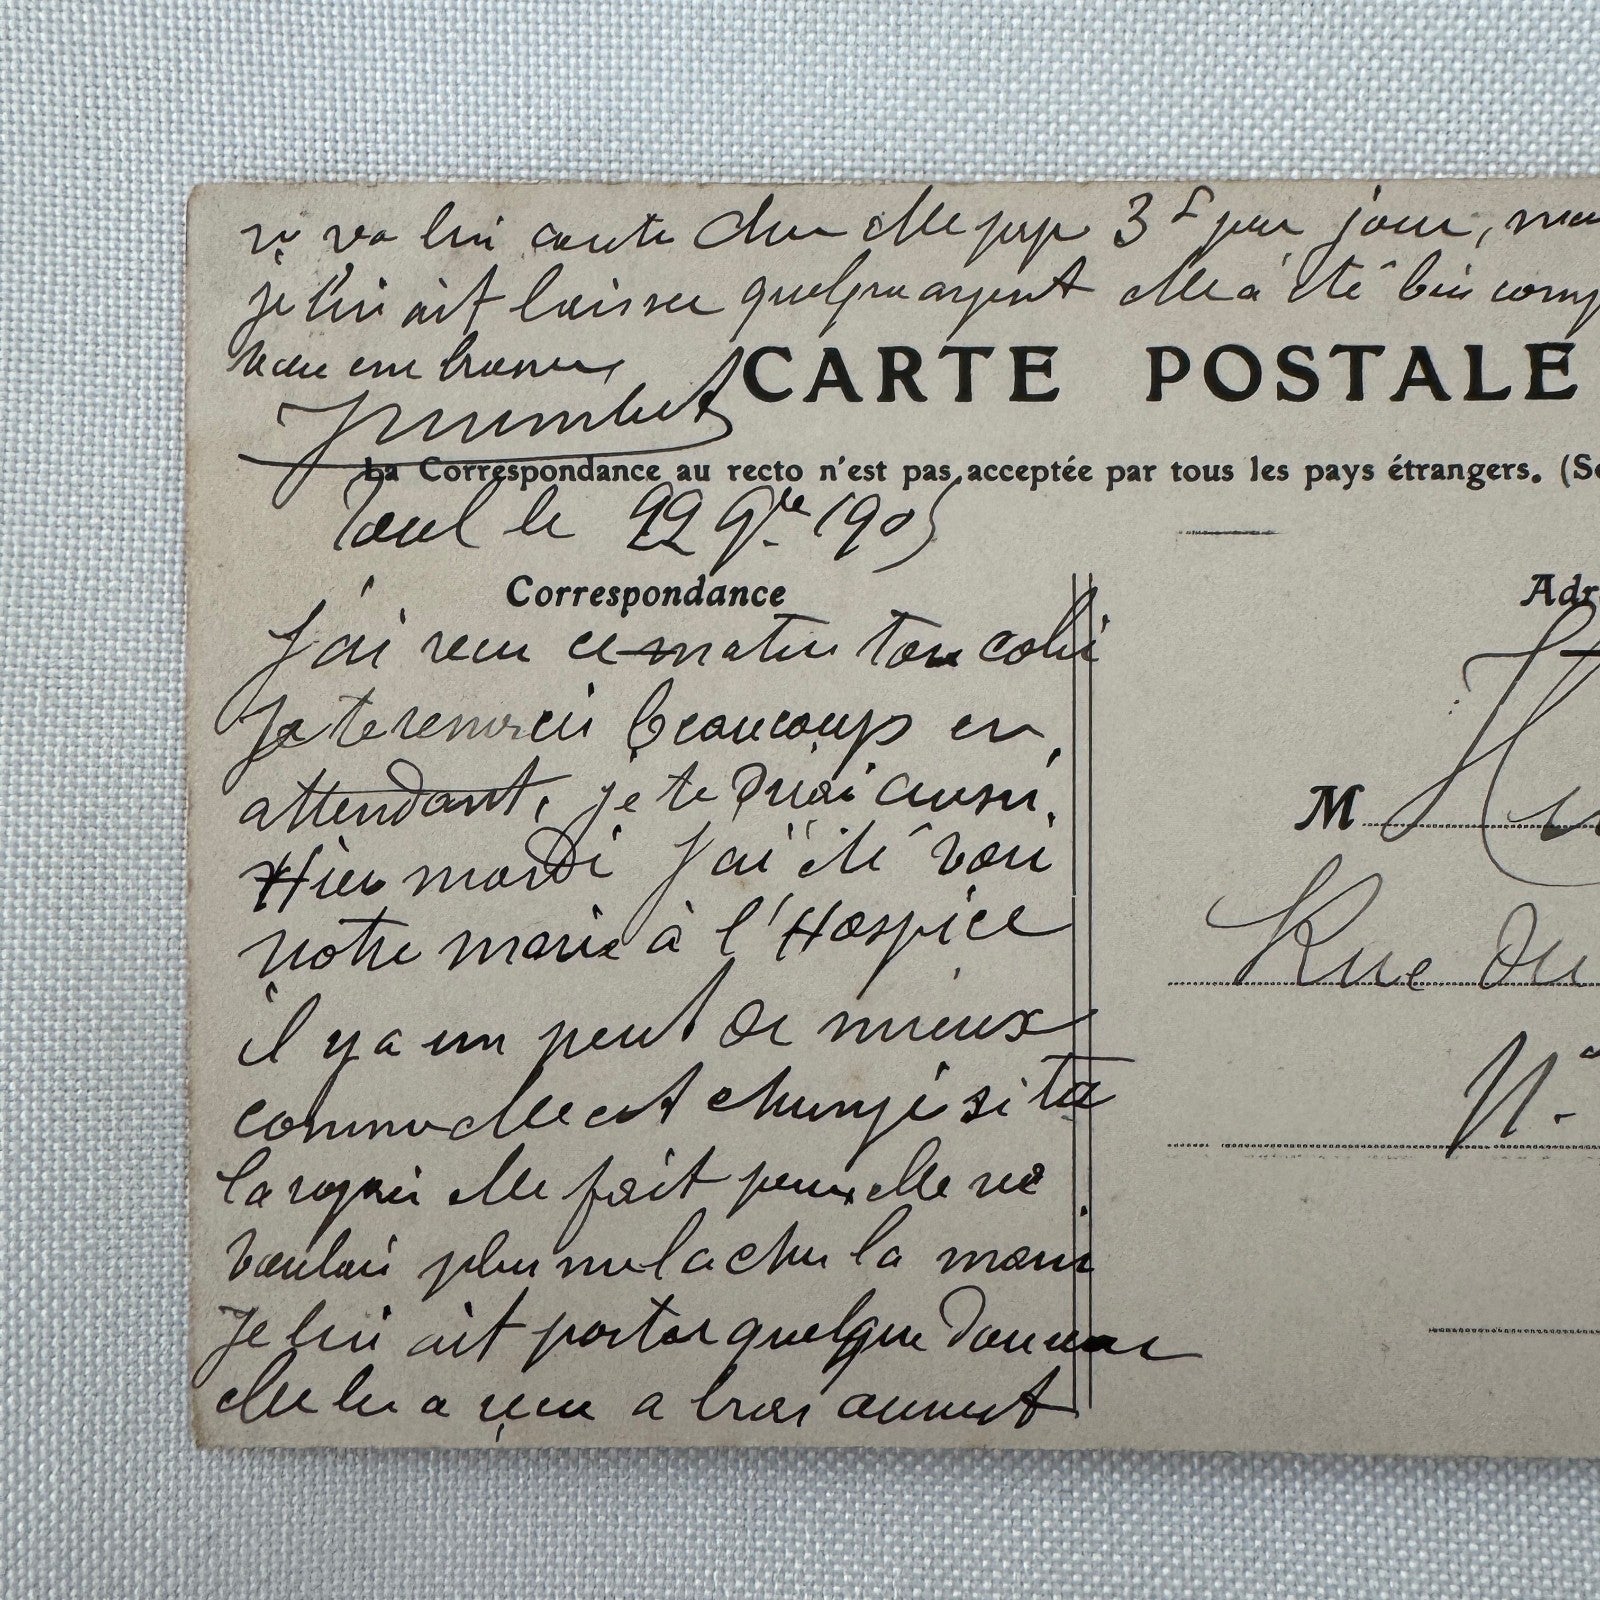 va lui coute cher elle pep 3f par jour, mai
je lui ait laisser quelque argent elle a été bien comp
vous embrasse
CARTE POSTALE
La Correspondance au recto n'est pas acceptée par tous les pays étrangers. (Se
Toul le 22 9bre 1905
Correspondance
Adr
J'ai recu ce matin ton colis
Je te remerci beaucoup en
attendant, je te dirai aussi
Hier mardi J'ai été voir
M Hu
notre marie à l'Hospice
Rue du
il y a un peut de mieux
N.
comme elle est changé si ta
la voyais elle fait peur elle ne
voulai plus me lacher la main
Je lui ait porter quelque douceur
elle les a reçu a bras ouvert